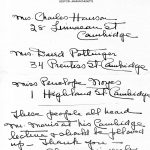 Mrs Charles Hanson
28 Linnaean St
Cambridge
Mrs David Pottinger
34 Prentiss St Cambridge
Miss Penelope Noyes
Highland St Cambridge
These people all heard
Mr. Morris at his Cambridge
lecture & should be followed
up - Thank you -